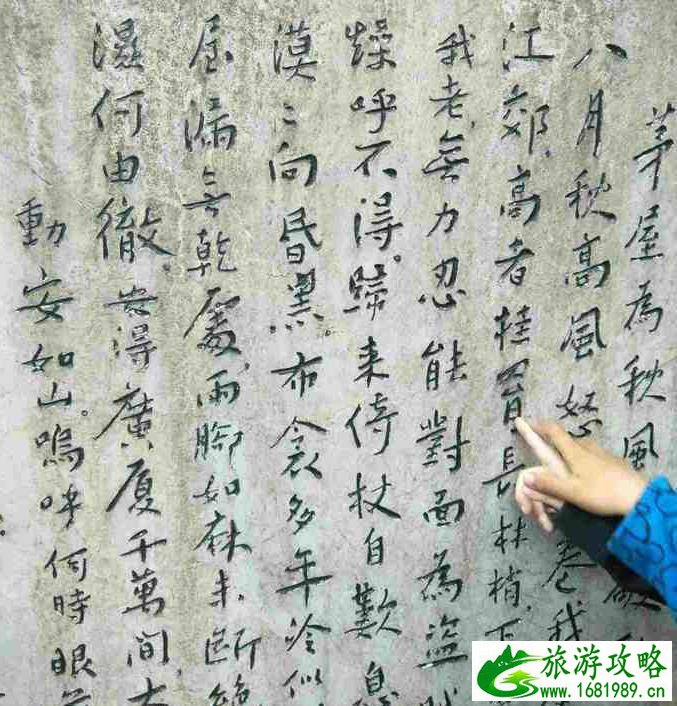 茅屋為秋風
八月秋高風怒卷我
江郊,高者挂罥長林梢,下
我老無力忍能對面為盜
燥呼不得。歸来倚杖自歎息
漠〻向昏黑。布衾多年冷似
屋漏無乾處,雨腳如麻未断絶
濕何由徹。安得廣厦千萬間,大
動安如山。嗚呼何時眼
旅游攻略
www.1681989.cn